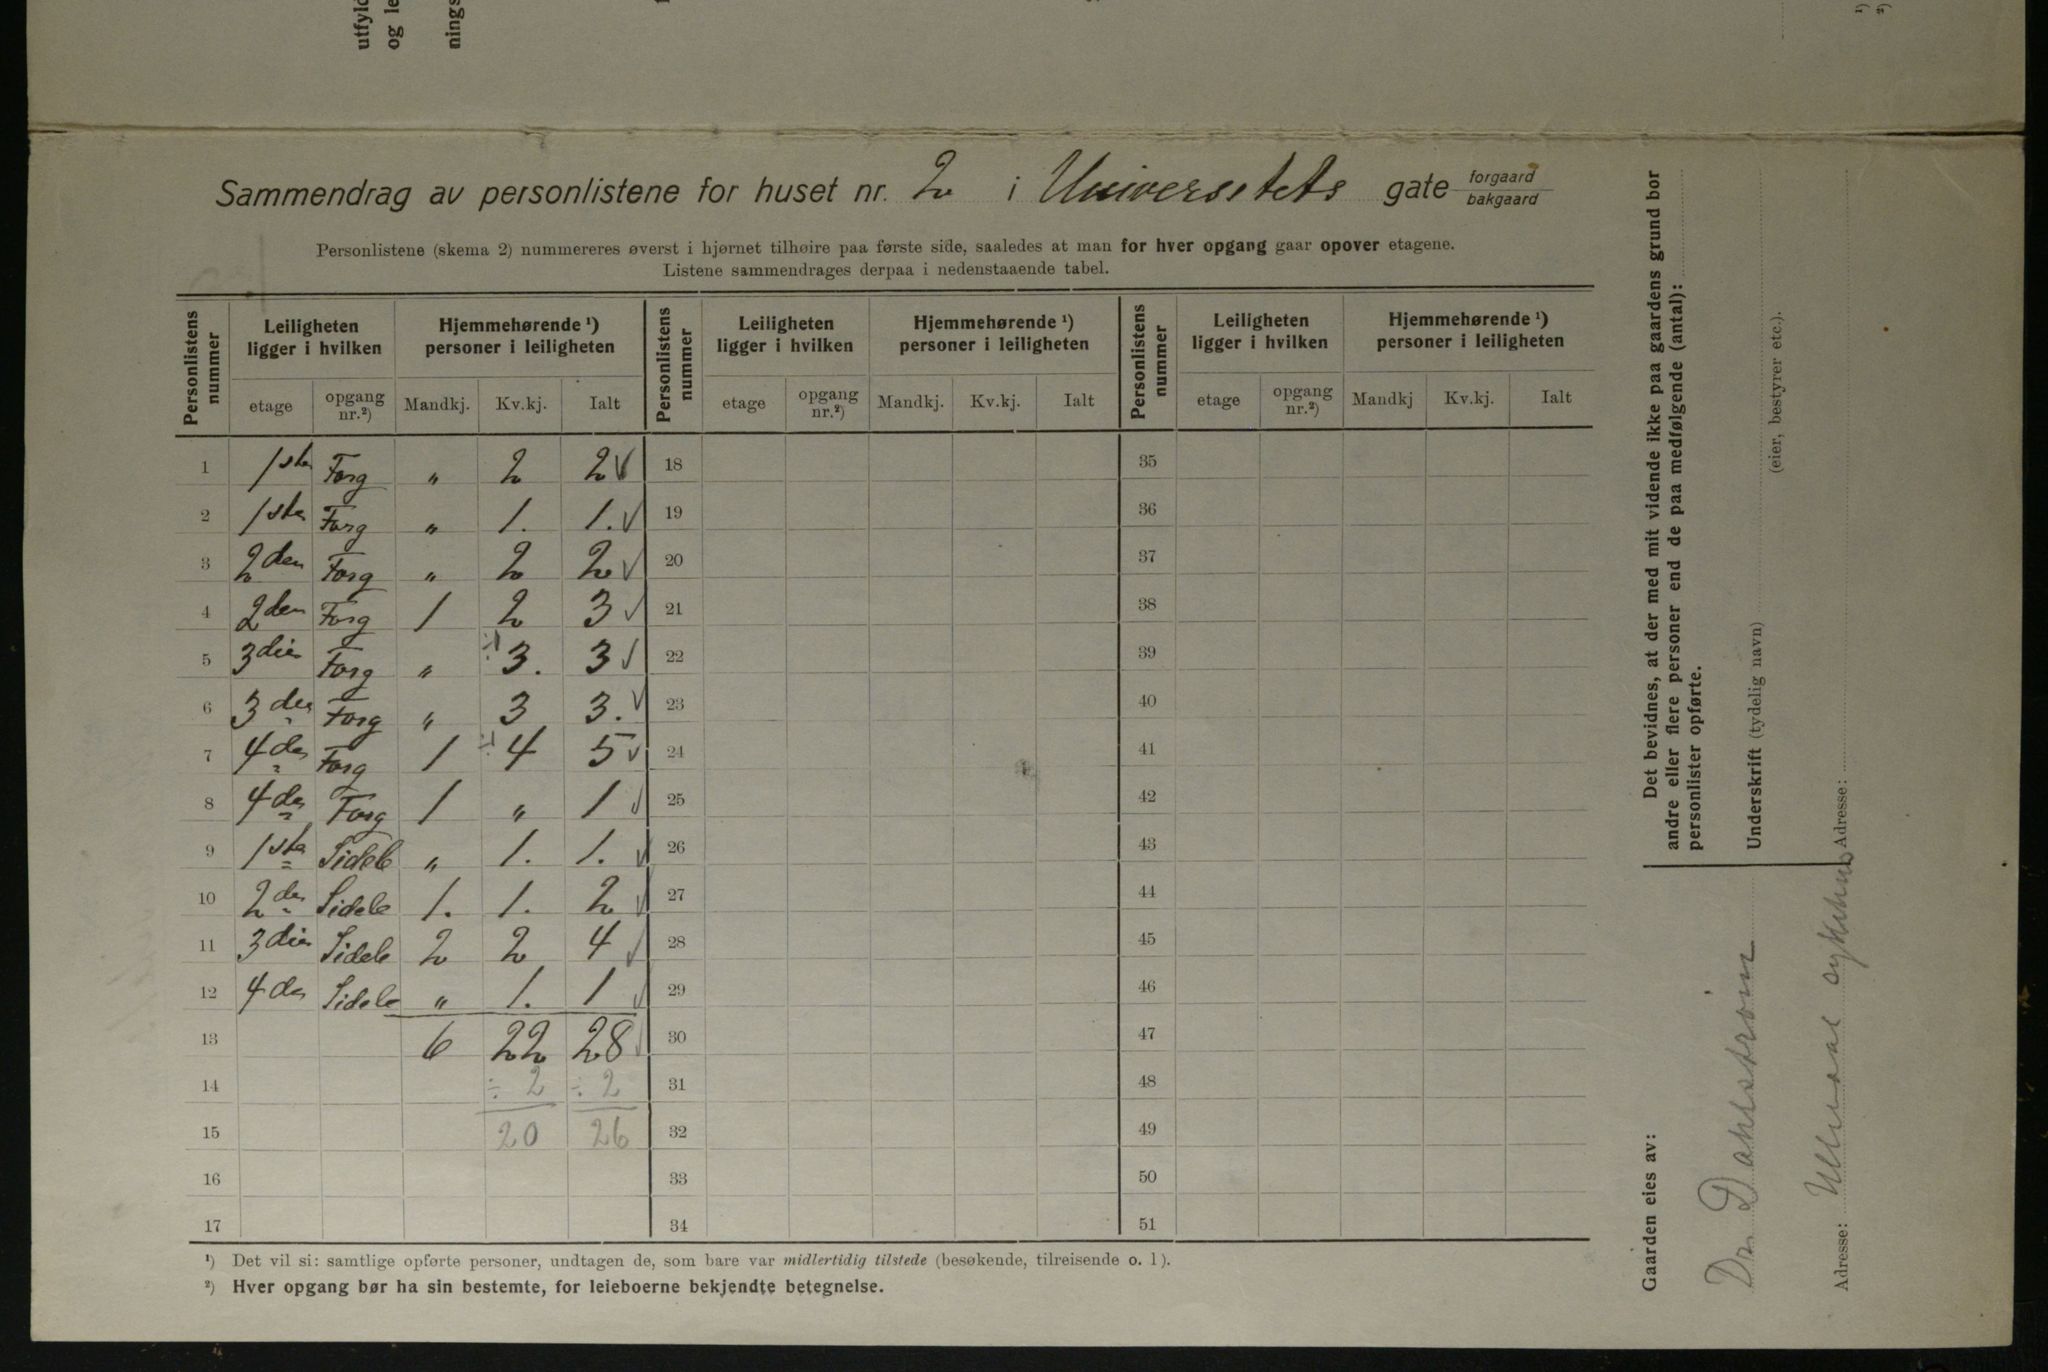 utfyld
og le
nings
¹)
²)
Sammendrag av personlistene for huset nr. 2 i Universitets gate forgaard
bakgaard
Personlistene (skema 2) nummereres øverst i hjørnet tilhøire paa første side, saaledes at man for hver opgang gaar opover etagene.
Listene sammendrages derpaa i nedenstaaende tabel.
Personlistens nummer | Leiligheten ligger i hvilken | Hjemmehørende ¹) personer i leiligheten | Personlistens nummer | Leiligheten ligger i hvilken | Hjemmehørende ¹) personer i leiligheten | Personlistens nummer | Leiligheten ligger i hvilken | Hjemmehørende ¹) personer i leiligheten
etage | opgang nr.²) | Mandkj. | Kv.kj. | Ialt | etage | opgang nr.²) | Mandkj. | Kv.kj. | Ialt | etage | opgang nr.²) | Mandkj | Kv.kj. | Ialt
1 | 1ste | Forg | „ | 2 | 2 √ | 18 | 35
2 | 1ste | Forg | „ | 1. | 1. √ | 19 | 36
3 | 2den | Forg | „ | 2 | 2 √ | 20 | 37
4 | 2den | Forg | 1 | 2 | 3 √ | 21 | 38
5 | 3die | Forg | „ | ÷1 3. | 3 √ | 22 | 39
6 | 3die | Forg | „ | 3 | 3. √ | 23 | 40
7 | 4de | Forg | 1 | ÷1 4 | 5 √ | 24 | 41
8 | 4de | Forg | 1 | „ | 1 √ | 25 | 42
9 | 1ste | Sideb | „ | 1. | 1. √ | 26 | 43
10 | 2den | Sideb | 1. | 1. | 2 √ | 27 | 44
11 | 3die | Sideb | 2 | 2 | 4 √ | 28 | 45
12 | 4de | Sideb | „ | 1. | 1 √ | 29 | 46
13 | 6 | 22 | 28 √ | 30 | 47
14 | ÷ 2 | ÷ 2 | 31 | 48
15 | 20 | 26 | 32 | 49
16 | 33 | 50
17 | 34 | 51
¹) Det vil si: samtlige opførte personer, undtagen de, som bare var midlertidig tilstede (besøkende, tilreisende o. l).
²) Hver opgang bør ha sin bestemte, for leieboerne bekjendte betegnelse.
Det bevidnes, at der med mit vidende ikke paa gaardens grund bor
andre eller flere personer end de paa medfølgende (antal):
personlister opførte.
Underskrift (tydelig navn)
(eier, bestyrer etc.).
Adresse:
Gaarden eies av:
Dr. Dahlstrøm
Adresse: Ullevaal sykehus